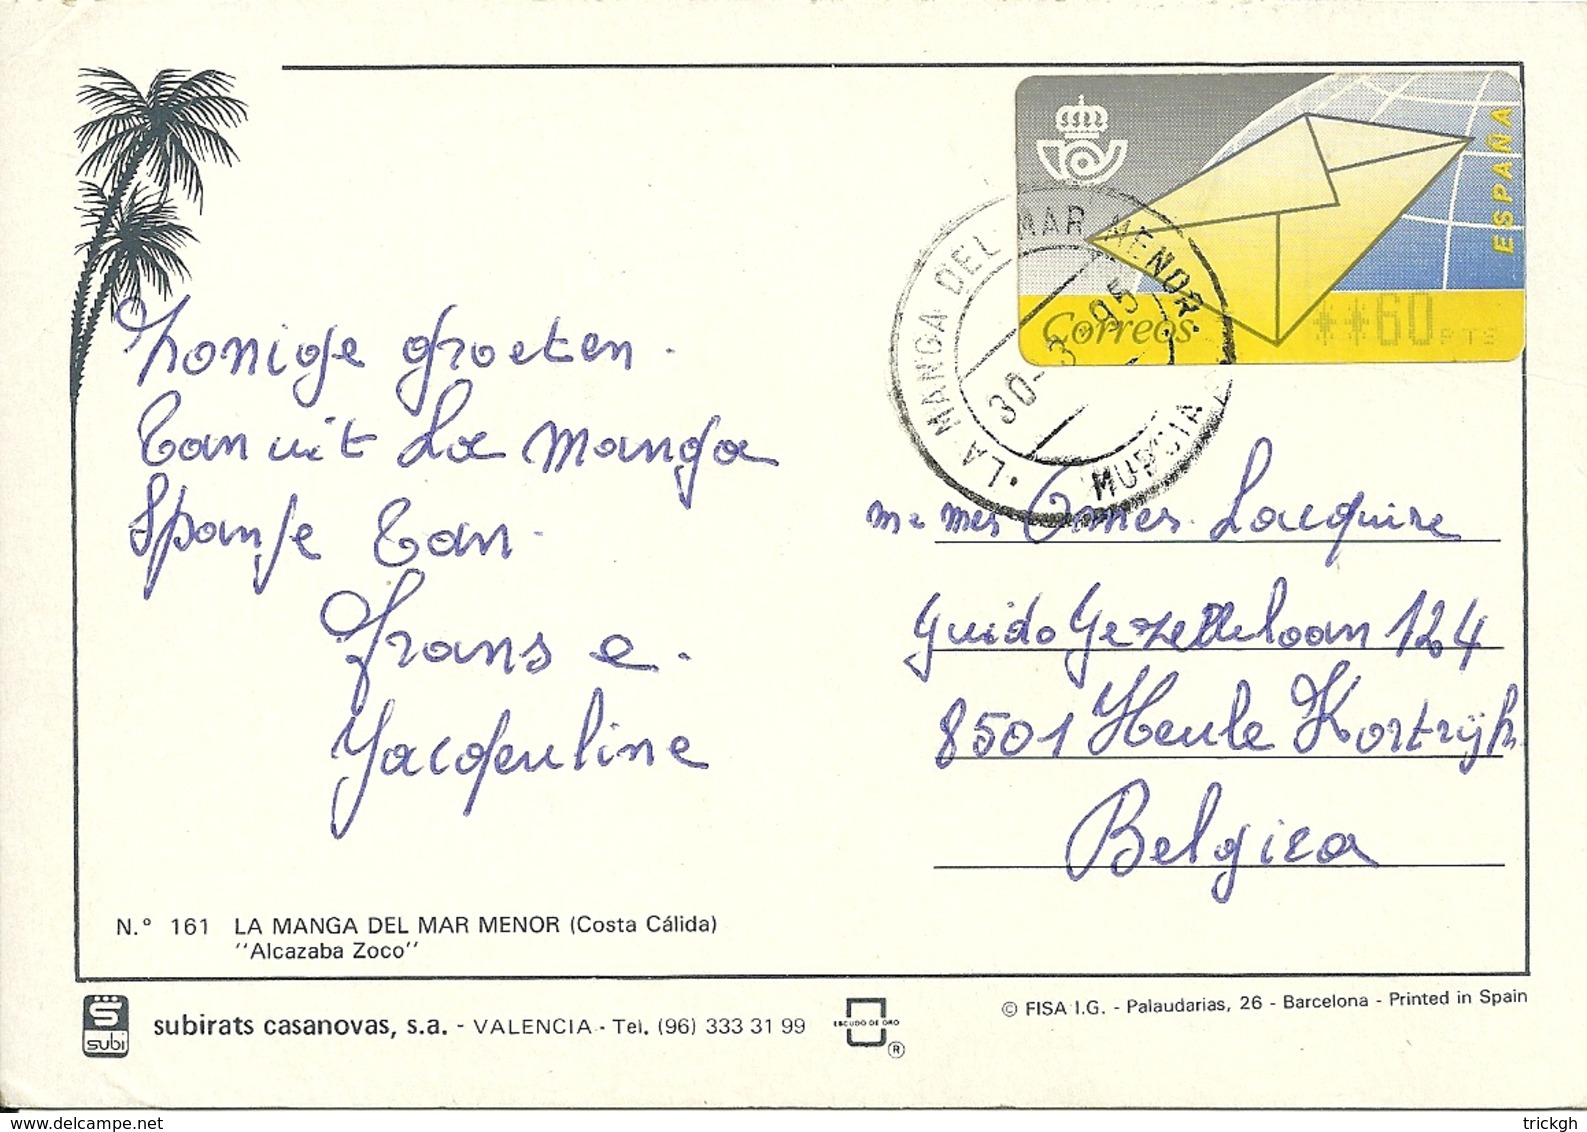 ESPAÑA
Correos
**60 PTS
· LA MANGA DEL MAR MENOR ·
30-3-95
MURCIA
Zonige groeten
van uit La Manga
Spanje van
Frans e
Jacqueline
Guido Gezellelaan 124
8501 Heule Kortrijk
Belgica
N.º 161 LA MANGA DEL MAR MENOR (Costa Cálida)
''Alcazaba Zoco''
subi
subirats casanovas, s.a. - VALENCIA - Tel. (96) 333 31 99
ESCUDO DE ORO
®
© FISA I.G. - Palaudarias, 26 - Barcelona - Printed in Spain
delcampe.net
trickgh